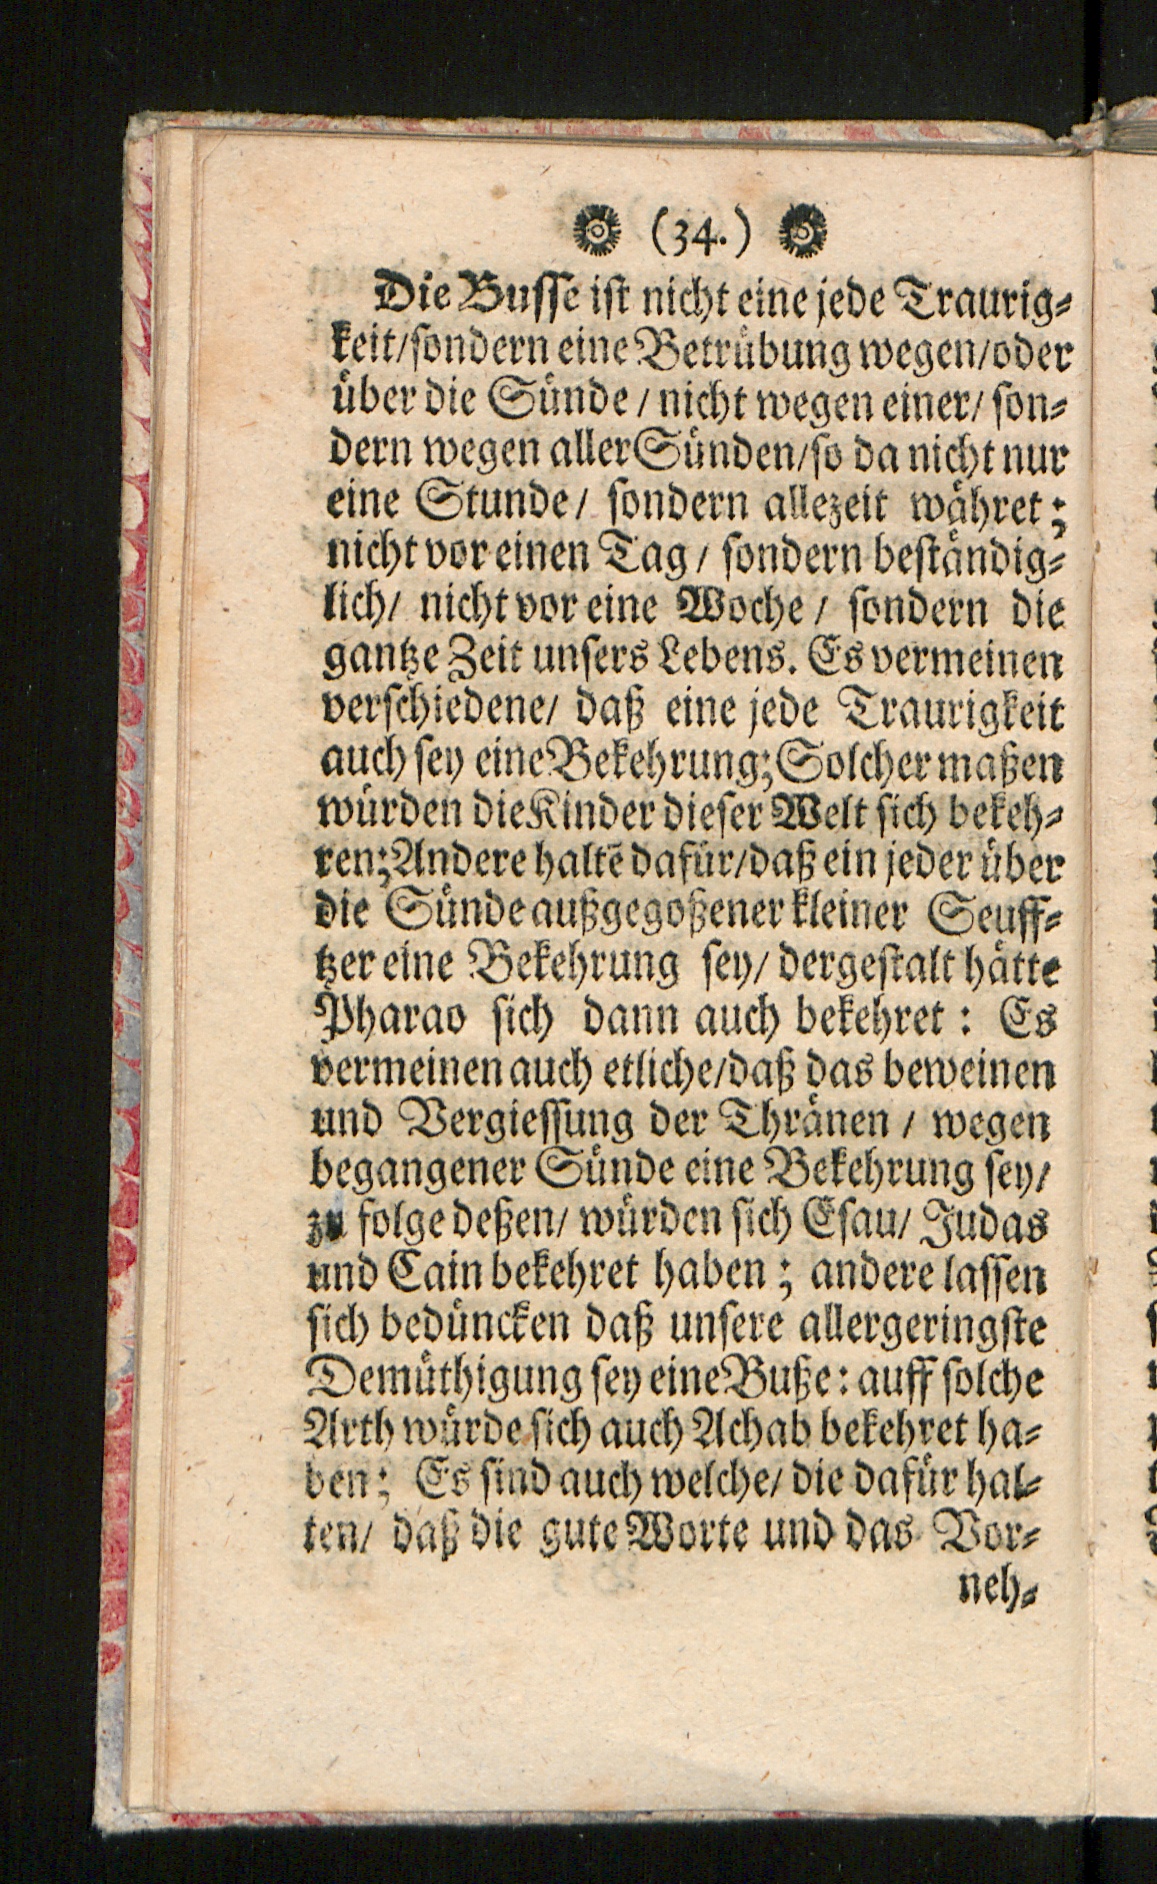 (34.)
Die Busse ist nicht eine jede Traurig-
keit/sondern eine Betrübung wegen/oder
über die Sünde / nicht wegen einer/ son-
dern wegen aller Sünden/so da nicht nur
eine Stunde/ sondern allezeit währet;
nicht vor einen Tag / sondern beständig-
lich/ nicht vor eine Woche / sondern die
gantze Zeit unsers Lebens. Es vermeinen
verschiedene/ daß eine jede Traurigkeit
auch sey eine Bekehrung; Solcher maßen
würden die Kinder dieser Welt sich bekeh-
ren; Andere haltē dafür/daß ein jeder über
die Sünde außgegoßener kleiner Seuff-
tzer eine Bekehrung sey/ dergestalt hätte
Pharao sich dann auch bekehret : Es
vermeinen auch etliche/daß das beweinen
und Vergiessung der Thränen / wegen
begangener Sünde eine Bekehrung sey/
zu folge deßen/ würden sich Esau/ Judas
und Cain bekehret haben ; andere lassen
sich bedüncken daß unsere allergeringste
Demüthigung sey eine Buße: auff solche
Arth würde sich auch Achab bekehret ha-
ben; Es sind auch welche/ die dafür hal-
ten/ daß die gute Worte und das Vor-
neh-